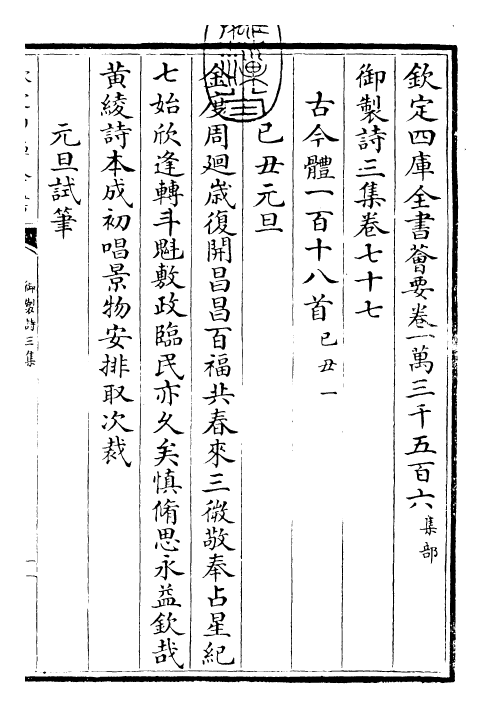 欽定四庫全書薈要卷一萬三千五百六 集部
御製詩三集卷七十七
古今體一百十八首 己丑一
己丑元旦
金度周廻嵗復開昌昌百福共春來三微敬奉占星紀
七始欣逢轉斗魁敷政臨民亦久矣慎脩思永益欽哉
黄綾詩本成初唱景物安排取次裁
元旦試筆
御製詩三集